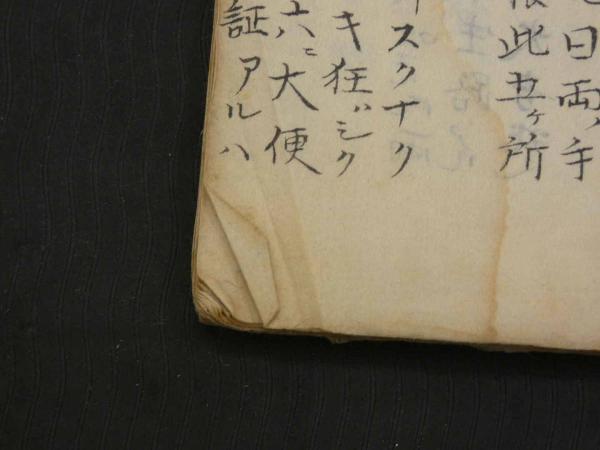 日両ノ手
此五ヶ所
スクナク
キ狂ハシク
六ニ大便
証アルハ